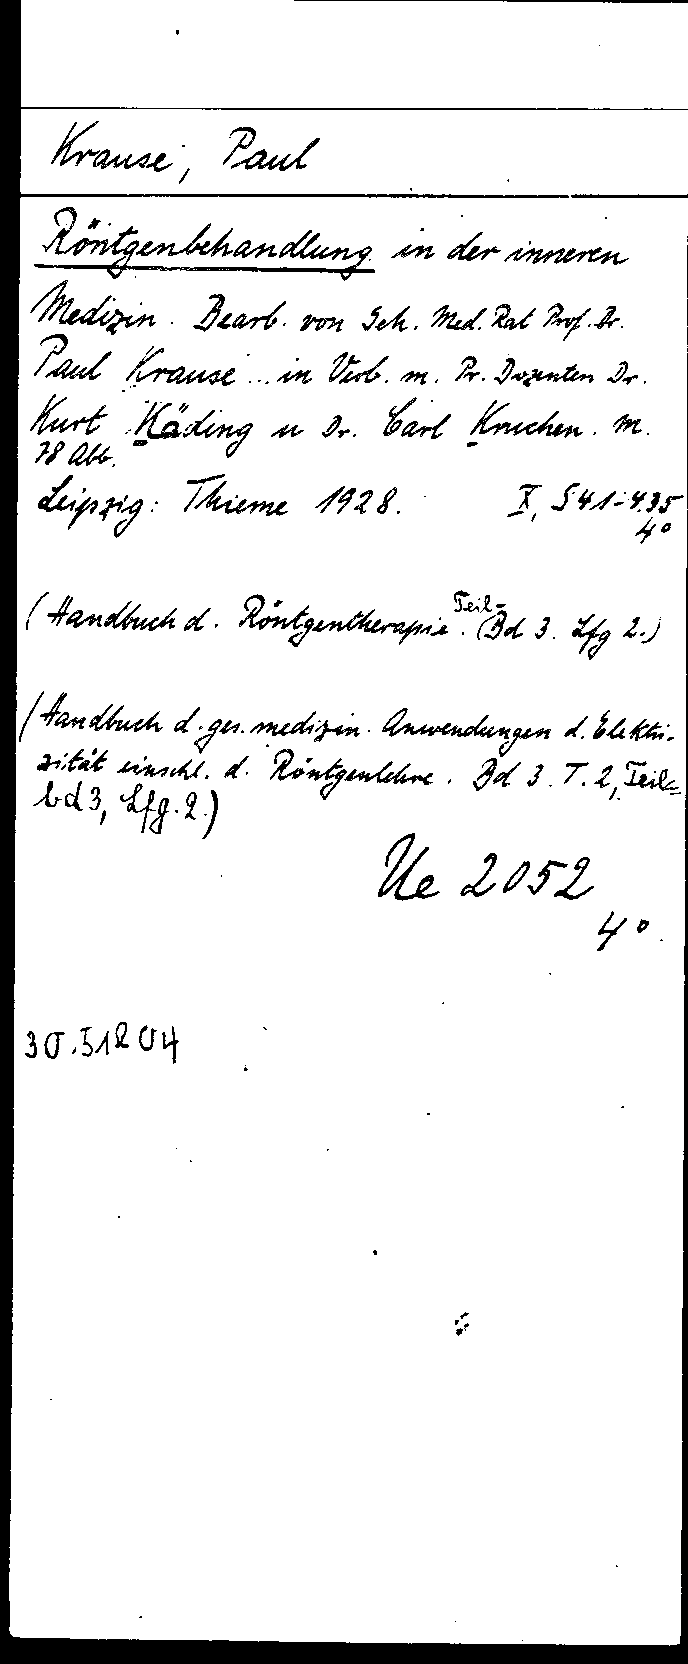 Krause, Paul
Röntgenbehandlung in der inneren
Medizin. Bearb. von Geh. Med. Rat Prof. Dr.
Paul Krause ... in Verb. m. Pr. Dozenten Dr.
Kurt Käding u Dr. Carl Kruchen. M.
78 Abb.
Leipzig: Thieme 1928. X, S 41-435
4°
(Handbuch d. Röntgentherapie. (Teil-Bd 3. Lfg 2.)
(Handbuch d. ges. medizin. Anwendungen d. Elektri-
zität einschl. d. Röntgenlehre. Bd 3. T. 2, Teil=
bd 3, Lfg. 2.)
Ue 2052
4°
30.51204